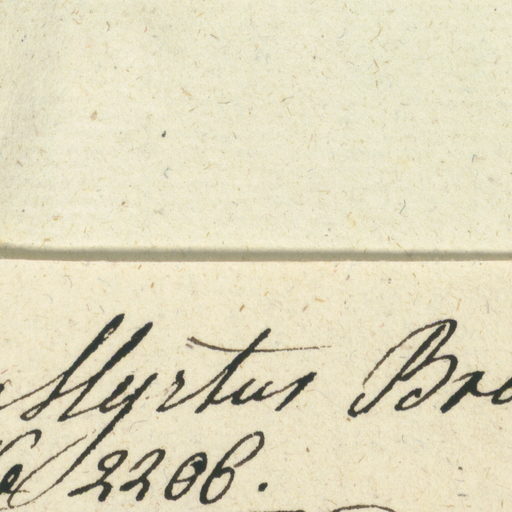 Myrtus Bro
No 2206.